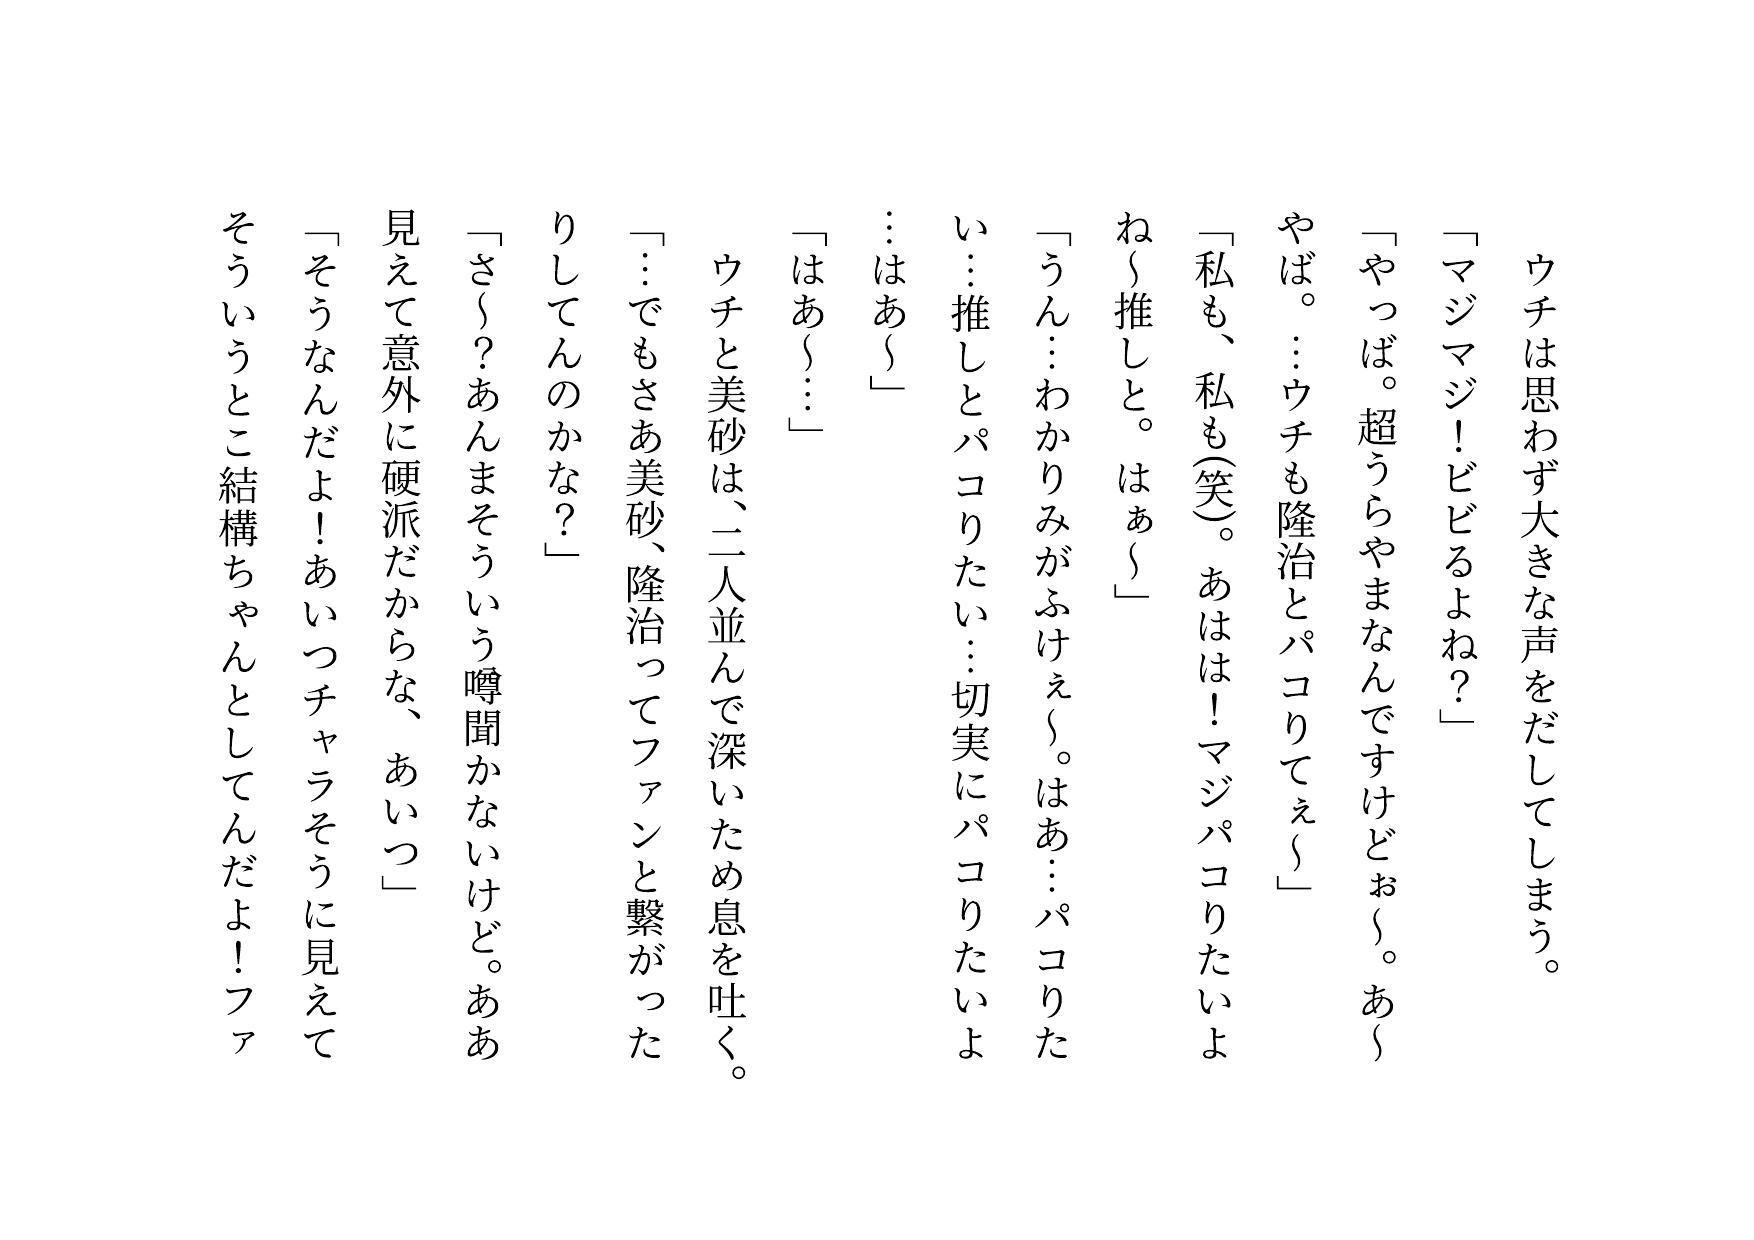 ウチは思わず大きな声をだしてしまう。
「マジマジ！ビビるよね？」
「やっば。超うらやまなんですけどぉ〜。あ〜
やば。…ウチも隆治とパコりてぇ〜」
「私も、私も(笑)。あはは！マジパコりたいよ
ね〜推しと。はぁ〜」
「うん…わかりみがふけぇ〜。はあ…パコりた
い…推しとパコりたい…切実にパコりたいよ
…はあ〜」
「はあ〜…」
　ウチと美砂は、二人並んで深いため息を吐く。
「…でもさあ美砂、隆治ってファンと繋がった
りしてんのかな？」
「さ〜？あんまそういう噂聞かないけど。ああ
見えて意外に硬派だからな、あいつ」
「そうなんだよ！あいつチャラそうに見えて
そういうとこ結構ちゃんとしてんだよ！ファ